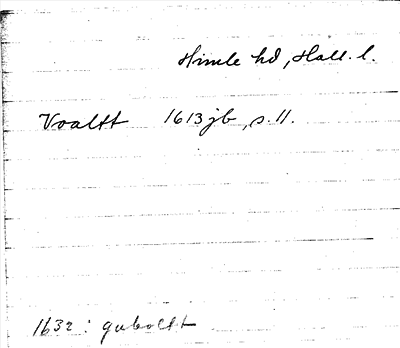 Himle hd, Hall. l.
Voaltt 1613 jb, s. 11.
1632: guboltt